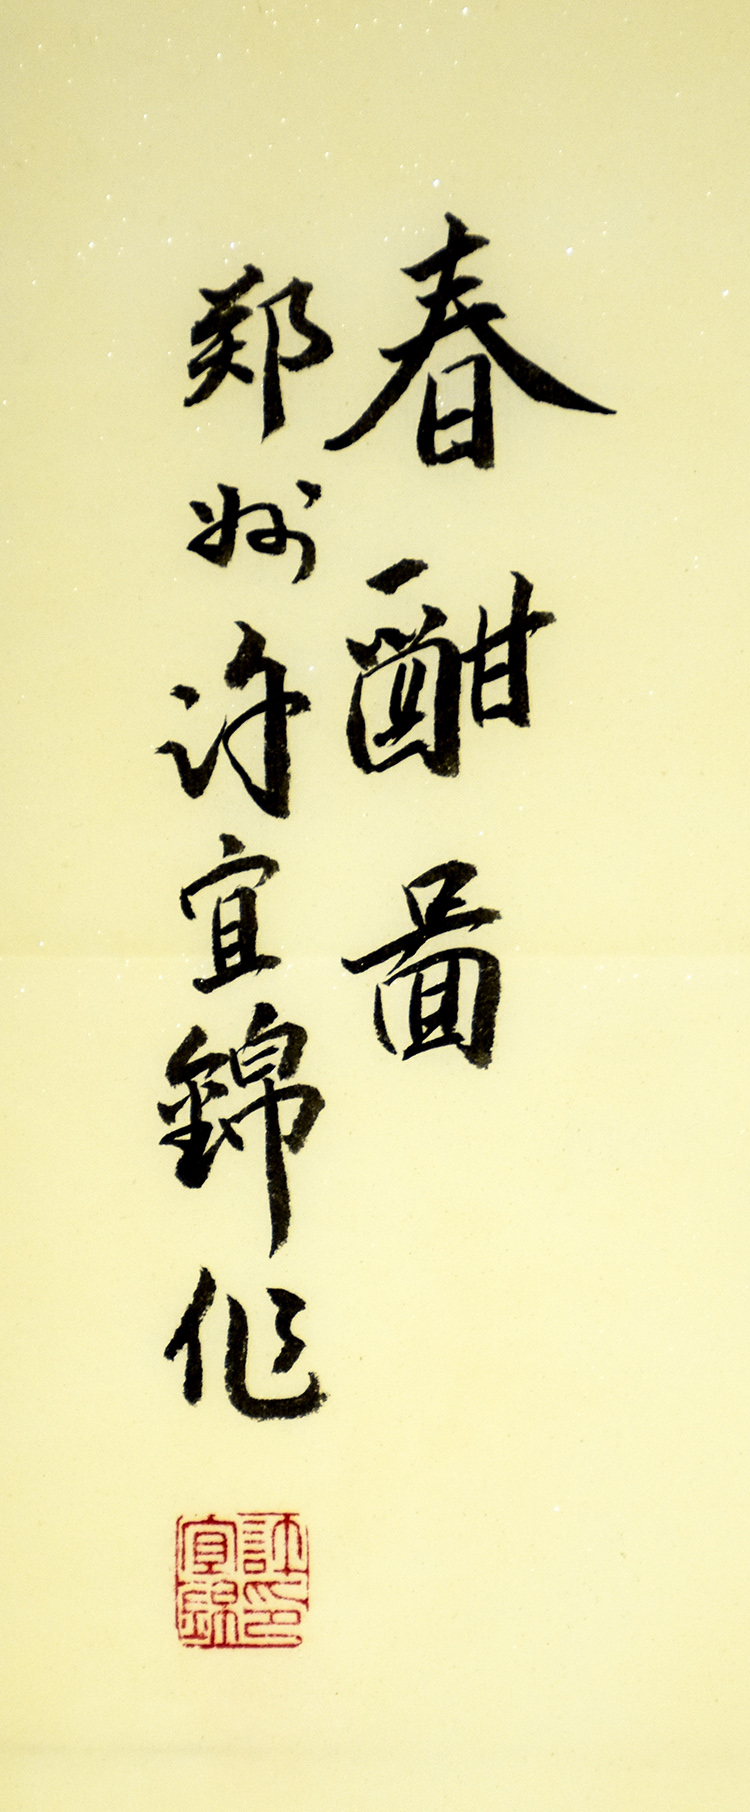 春酣圖
鄭州許宜錦作
許印宜錦